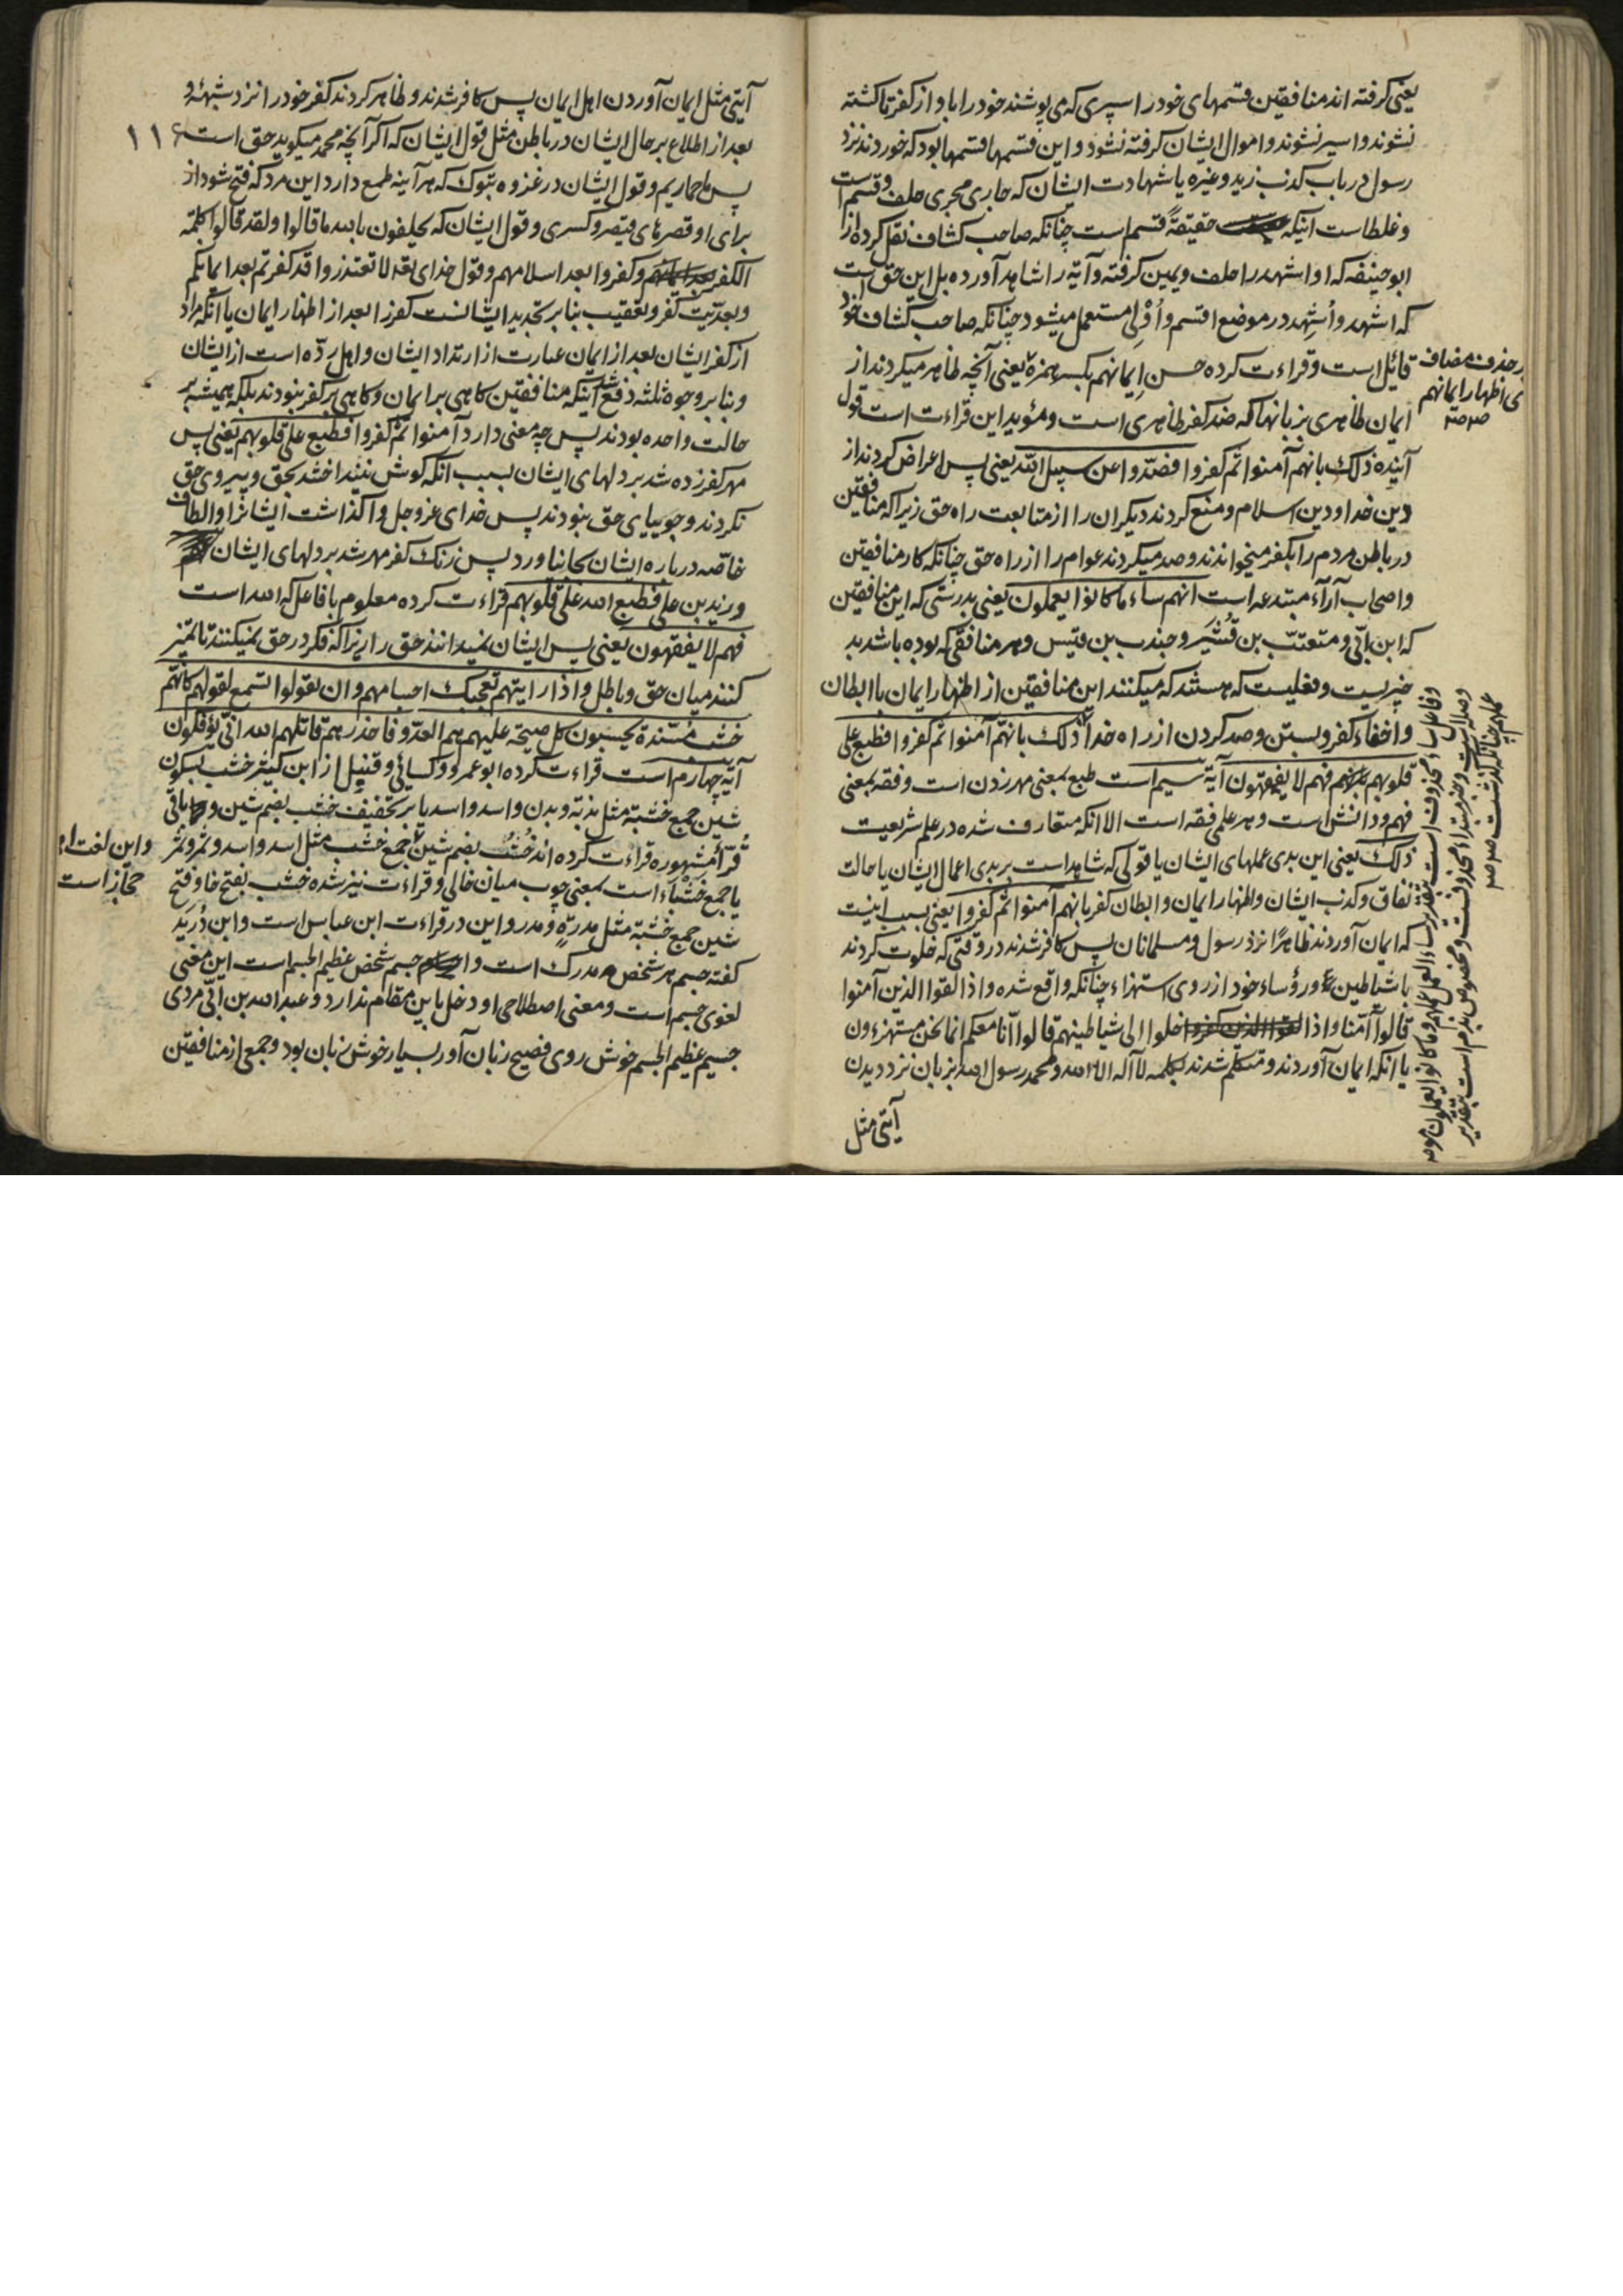 یعنی کرفته اند منافقین قسمهای خود را سپری که می پوشند خود را باو از کفر تا کشته
نشوند و اسیر نشوند و اموال ایشان کرفته نشود و این قسمها قسمها بود که خوردند نزد
رسول در باب کذب زید و غیره یا شهادت ایشان که جاری مجری حلف و قسم است
و غلط است اینکه حقیقةً قسم است چنانکه صاحب کشاف نقل کرده از
ابو حنیفه که او اشهد را حلف و یمین کرفته و آیة را شاهد آورده بل این حق است
که اشهد و اُشهِد در موضع اقسم و اُوْلِی مستعمل میشود چنانکه صاحب کشاف خود
قائل است و قراءت کرده حسن اِیمانهم بکسر همزة یعنی آنچه ظاهر میکردند از
ایمان ظاهری بزبانها که ضد کفر ظاهری است و مؤید این قراءت است قول
آینده ذلک بانهم آمنوا ثم کفروا فصدّوا عن سبیل الله یعنی پس اعراض کردند از
دین خدا و دین اسلام و منع کردند دیکران را از متابعت راه حق زیرا که منافقین
در باطن مردم را بکفر میخواندند و صد میکردند عوام را از راه حق چنانکه کار منافقین
و اصحاب آرآء مبتدعه است انهم سآء ما کانوا یعملون یعنی بدرستی که این منافقین
که ابن ابّی و متعتّب بن قُشَیر و جندب بن قیس و هر منافقی که بوده باشد بد
چیزیست و فعلیست که هستند که میکنند این منافقین از اظهار ایمان با ابطان
و اخفاء کفر و بستن و صد کردن از راه خدا ذلک بانهم آمنوا ثم کفروا فطبع علی
قلوبهم فهم لا یفقهون آیة سیم است طبع بمعنی مهر زدن است و فقه بمعنی
فهم و دانش است و هر علمی فقه است الا انکه متعارف شده در علم شریعت
ذلک یعنی این بدی عملهای ایشان یا قولی که شاهد است بر بدی اعمال ایشان یا حالت
نفاق و کذب ایشان و اظهار ایمان و ابطان کفر بانهم آمنوا ثم کفروا یعنی بسبب اینست
که ایمان آوردند ظاهرًا نزد رسول و مسلمانان پس کافر شدند در وقتی که خلوت کردند
با شیاطین و رؤساء خود از روی استهزاء چنانکه واقع شده و اذا لقوا الذین آمنوا
قالوا آمنا و اذا خلوا الی شیاطینهم قالوا انا معکم انما نحن مستهزءون
یا انکه ایمان آوردند و متکلم شدند بکلمه لا آله الا الله و محمد رسول الله بزبان نزد دیدن
آیتی مثل
بر حذف مضاف
ی اظهار ایمانهم
آیتی مثل ایمان آوردن اهل ایمان پس کافر شدند و ظاهر کردند کفر خود را نزد شبهئه و
بعد از اطلاع بر حال ایشان در باطن مثل قول ایشان که اکر آنچه محمد میکوید حق است
۱۱۶
پس ما حماریم و قول ایشان در غزوه تبوک که هر آینه طمع دارد این مرد که فتح شود از
برای او قصرهای قیصر و کسری و قول ایشان که یحلفون بالله ما قالوا و لقد قالوا کلمة
الکفر و کفروا بعد اسلامهم و قول خدای تعه لا تعتذروا قد کفرتم بعد ایمانکم
و بعدیّت کفر و تعقیب بنا بر تجدید ایشانست کفر را بعد از اظهار ایمان یا آنکه مراد
از کفر ایشان بعد از ایمان عبارت از ارتداد ایشان و اهل ردّه است از ایشان
و بنا بر وجوه ثلثه دفع شد اینکه منافقین کاهی بر ایمان و کاهی بر کفر نبودند بلکه همیشه بر
حالت واحده بودند پس چه معنی دارد آمنوا ثم کفروا فطبع علی قلوبهم یعنی پس
مهر کفر زده شد بر دلهای ایشان بسبب انکه کوش نینداختند بحق و پیروی حق
نکردند و جوییای حق نبودند پس خدای عز و جل وا کذاشت ایشانرا و الطاف
خاصّه در باره ایشان بجا نیاورد پس زنک کفر مهر شد بر دلهای ایشان
و زید بن علی فطبع الله علی قلوبهم قراءت کرده معلوم با فاعل که الله است
فهم لا یفقهون یعنی پس ایشان نمیدانند حق را زیرا که فکر در حق نمیکنند تا تمیز
کنند میان حق و باطل و اذا رایتهم تعجبک اجسامهم و ان یقولوا تسمع لقولهم کانهم
خشب مسنّدة یحسبون کل صیحة علیهم هم العدّو فاحذرهم قاتلهم الله انّی یؤفکون
آیة چهارم است قراءت کرده ابو عمرو و کسائی و قنبل از ابن کثیر خشب بسکون
شین جمع خشبة مثل بدنة و بدن و اسد و اسد یا بر تخفیف خشب بضم شین و باقی
قرّاء مشهوره قراءت کرده اند خُشُب بضم شین جمع خشب مثل اسد و اسد و ثمر و ثمر
و این لغت اهل
حجاز است
یا جمع خشبآء است بمعنی چوب میان خالی و قراءت نیز شده خشب بفتح خا و فتح
شین جمع خشبة مثل مدرةٍ و مدر و این در قراءت ابن عباس است و ابن دُرَید
کفته جسم هر شخص مدرک است و جسم شخص عظیم الجسم است این معنی
لغوی جسم است و معنی اصطلاحی او دخل باین مقام ندارد و عبد الله بن ابّی مردی
جسیم عظیم الجسم خوش روی فصیح زبان آور بسیار خوش زبان بود و جمعی از منافقین